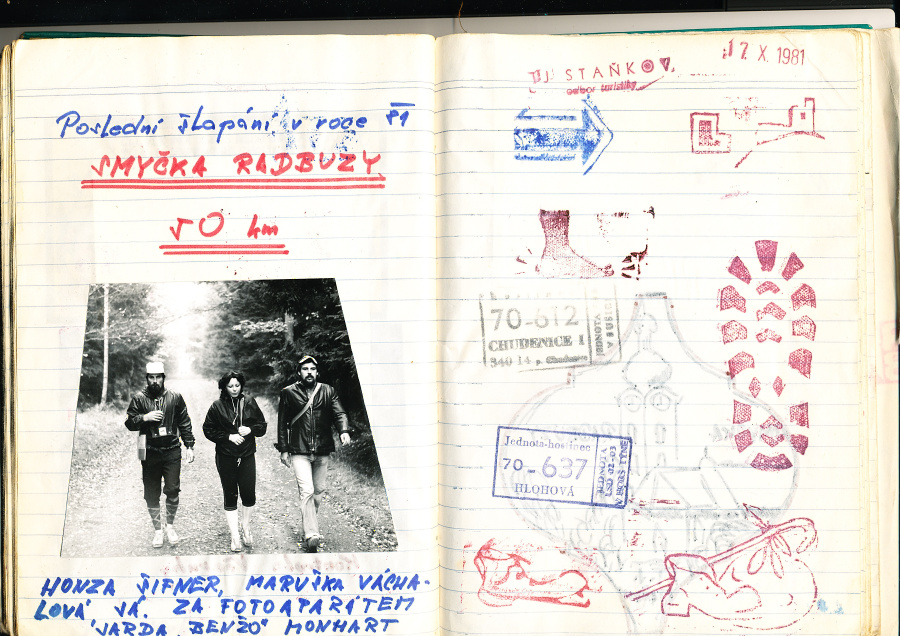 Poslední šlapání v roce 81
SMYČKA RADBUZY
50 km
HONZA ŠIFNER, MARUŠKA VÁCHA-
LOVÁ JÁ. ZA FOTOAPARÁTEM
JARDA "BENŽO" MONHART
17. X. 1981
TJ STAŇKOV
odbor turistiky
70-612
CHUDENICE 1
340 14 p. Chudenice
JEDNOTA
Jednota-hostinec
70-637
HLOHOVÁ
JEDNOTA
LSD 02-03
V HORŠ. TÝNĚ